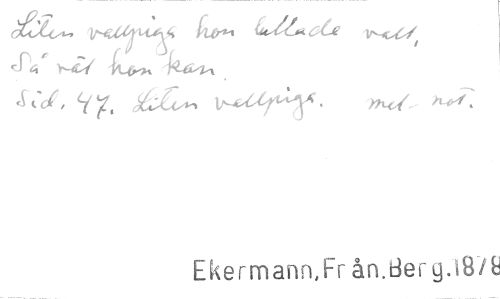 Liten vallpiga hon lallade vall,
Så vät hon kan.
Sid. 47. Liten vallpiga. mel. not.
Ekermann, Från. Berg. 1878